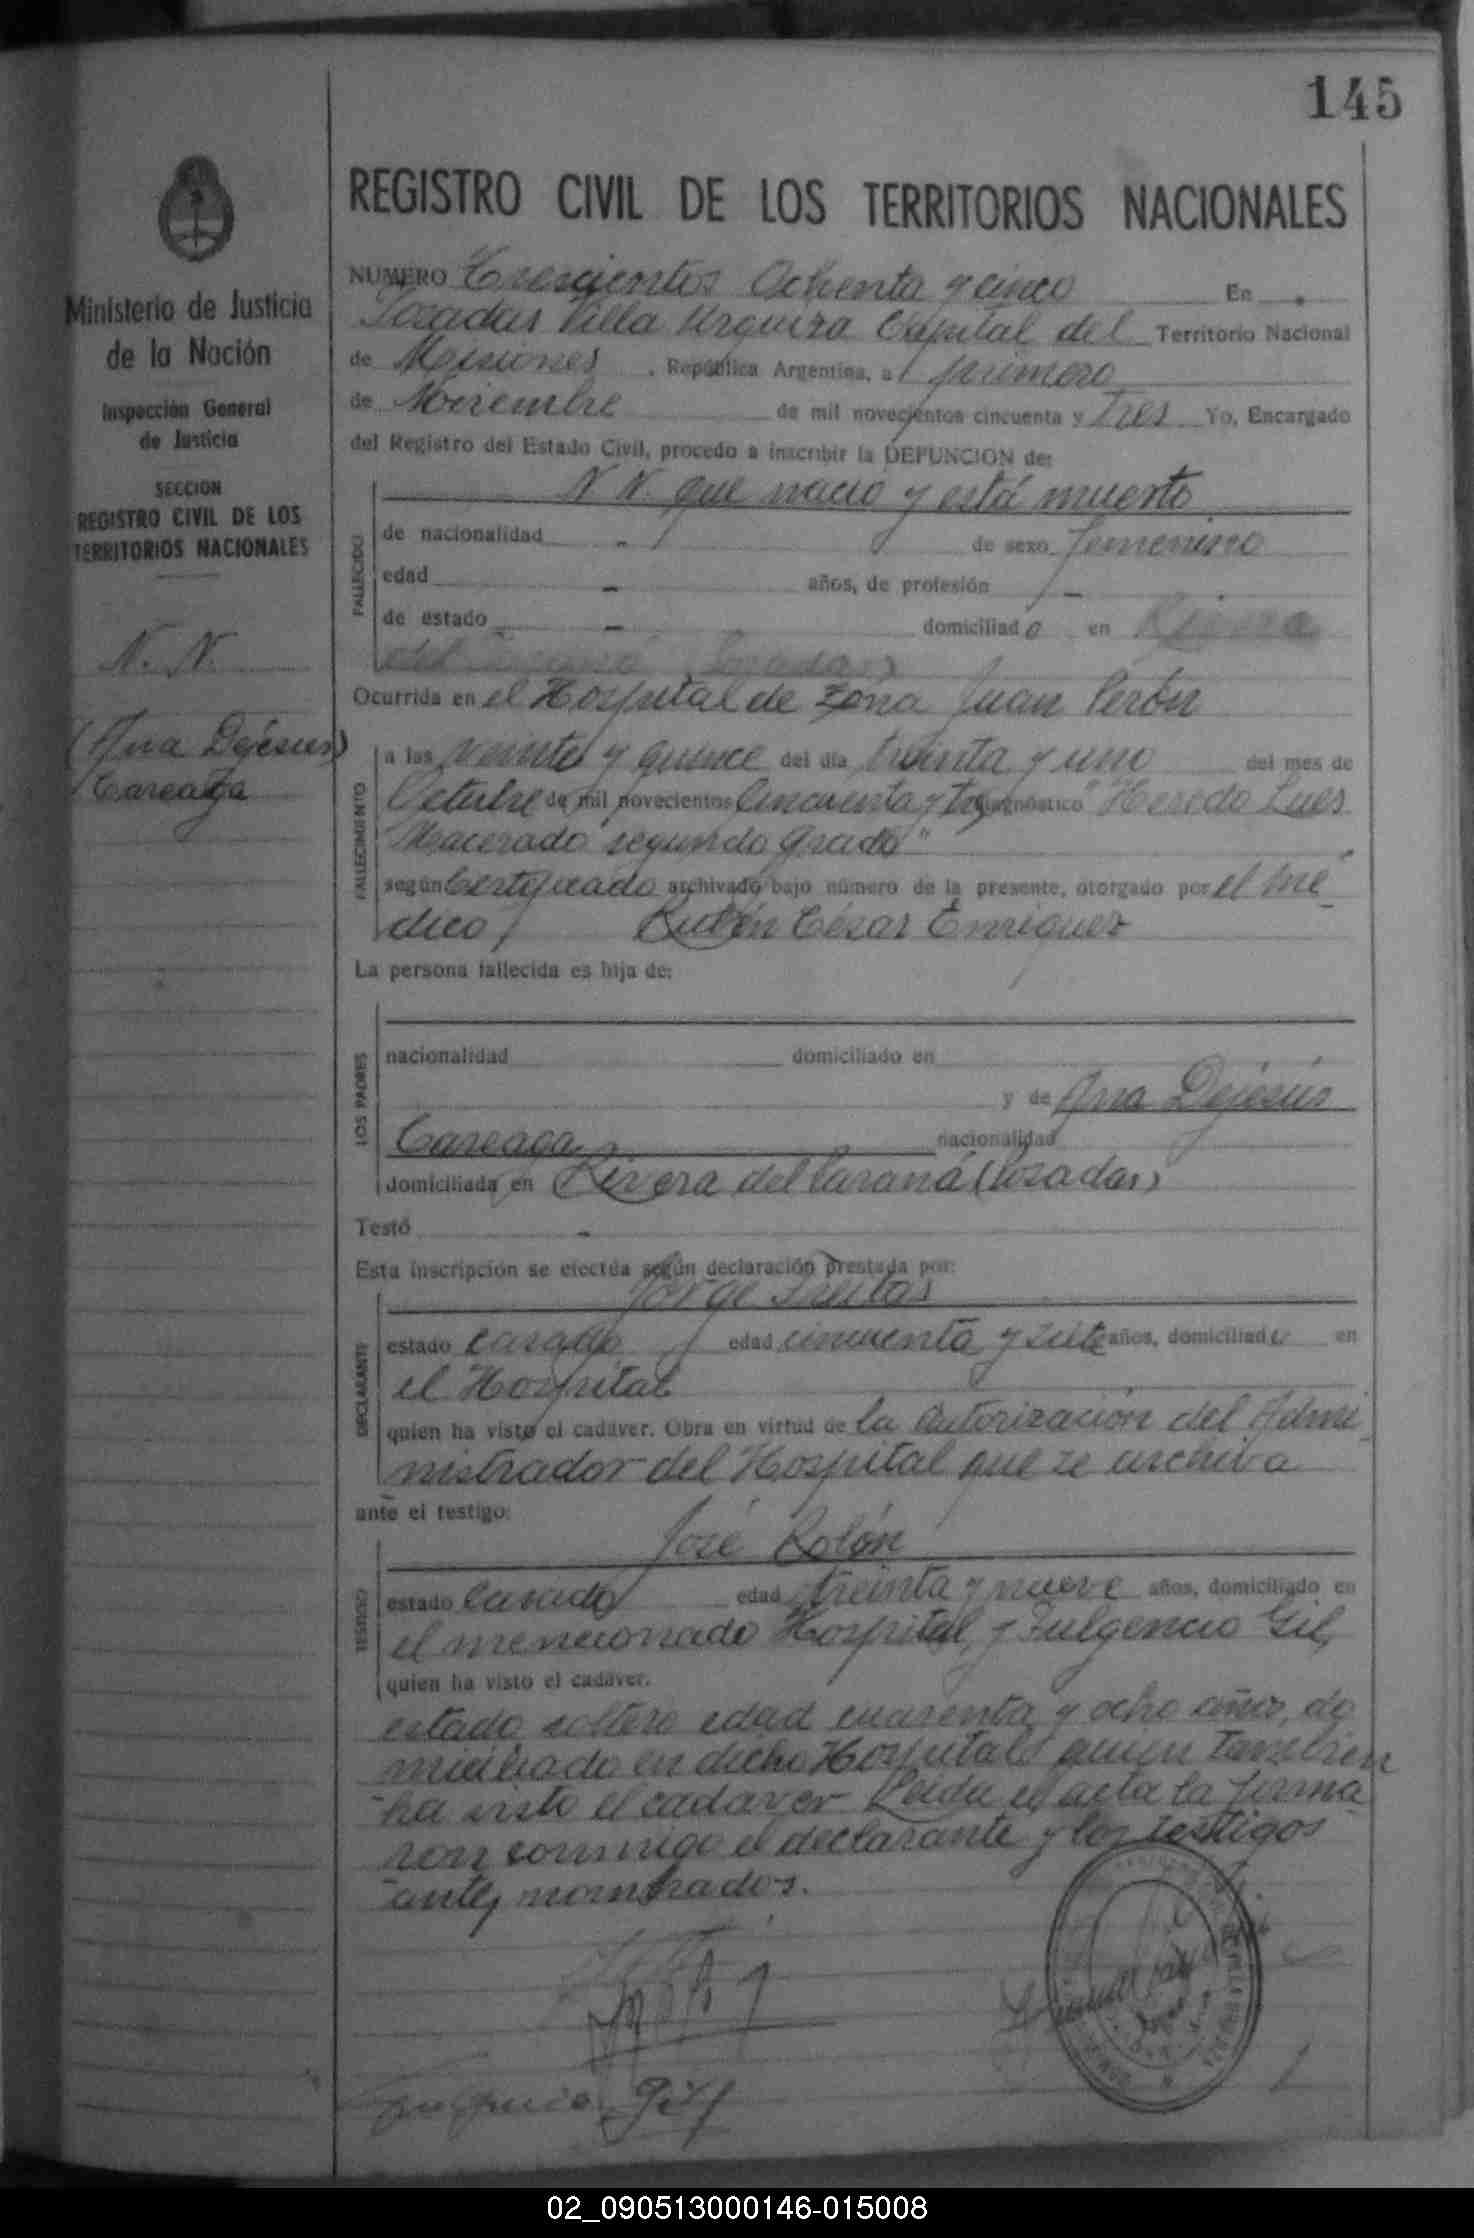 145
REGISTRO CIVIL DE LOS TERRITORIOS NACIONALES
Ministerio de Justicia
de la Nación
Inspección General
de Justicia
SECCION
REGISTRO CIVIL DE LOS
TERRITORIOS NACIONALES
N. N.
(Ana Dejesús)
Careaga
NUMERO Trescientos Ochenta y cinco En
Posadas Villa Urquiza Capital del Territorio Nacional
de Misiones, República Argentina, a primero
de Noviembre de mil novecientos cincuenta y Tres Yo, Encargado
del Registro del Estado Civil, procedo a inscribir la DEFUNCION de:
N N. que nació y está muerto
FALLECIDO
de nacionalidad - de sexo femenino
edad - años, de profesión -
de estado - domiciliado en Rivera
del Paraná (Posadas)
Ocurrida en el Hospital de Zona Juan Perón
FALLECIMIENTO
a las veinte y quince del día treinta y uno del mes de
Octubre de mil novecientos Cincuenta y tres diagnóstico "Heredo Lues
Macerado segundo grado"
según Certificado archivado bajo número de la presente, otorgado por el mé-
dico, Rubén César Enriquez
La persona fallecida es hija de:
LOS PADRES
nacionalidad domiciliado en
y de Ana Dejesús
Careaga nacionalidad
domiciliada en Rivera del Paraná (Posadas)
Testó -
Esta inscripción se efectúa según declaración prestada por:
Jorge Freitas
DECLARANTE
estado casado edad cincuenta y siete años, domiciliado en
el Hospital
quien ha visto el cadáver. Obra en virtud de la autorización del Admi-
nistrador del Hospital que se archiva
ante el testigo:
José Rolón
TESTIGO
estado Casado edad treinta y nueve años, domiciliado en
el mencionado Hospital, y Fulgencio Gil,
quien ha visto el cadáver.
estado soltero edad cuarenta y ocho años, do
miciliado en dicho Hospital quien también
ha visto el cadaver Leída el acta la firma-
ron conmigo el declarante y los testigos
antes nombrados.
Fulgencio Gil
02_090513000146-015008